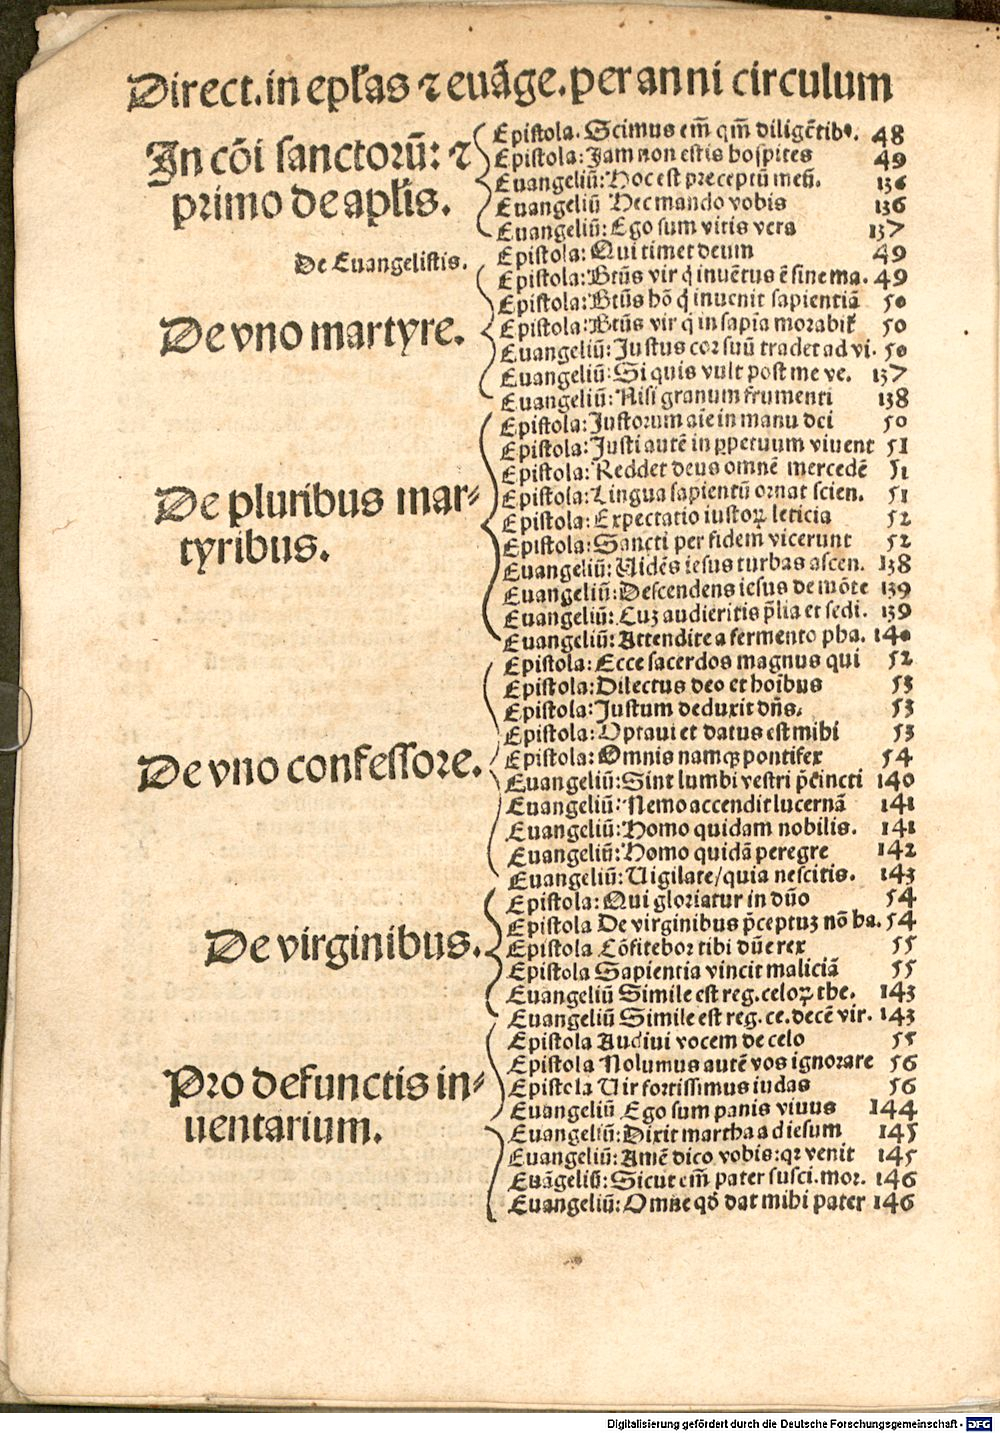 Direct. in epl̃as ⁊ euãge. per anni circulum
In cõi sanctorũ: ⁊
primo de apl̃is.
Epistola. Scimus em̃ qm̃ diligẽtibꝰ. 48
Epistola: Jam non estis hospites 49
Euangeliũ: Hoc est preceptũ meũ. 136
Euangeliũ Hec mando vobis 136
Euangeliũ: Ego sum vitis vera 137
De Euangelistis.
Epistola: Qui timet deum 49
De vno martyre.
Epistola: Btũs vir q̃ inuẽtus ẽ sine ma. 49
Epistola: Btũs hõ q̃ inuenit sapientiã 50
Epistola: Btũs vir q̃ in sapĩa morabit̃ 50
Euangeliũ: Justus cor suũ tradet ad vi. 50
Euangeliũ: Si quis vult post me ve. 137
Euangeliũ: Nisi granum frumenti 138
De pluribus mar⸗
tyribus.
Epistola: Justorum aĩe in manu dei 50
Epistola: Justi autẽ in ꝑpetuum viuent 51
Epistola: Reddet deus omnẽ mercedẽ 51
Epistola: Lingua sapientũ ornat scien. 51
Epistola: Expectatio iustoꝝ leticia 52
Epistola: Sancti per fidem vicerunt 52
Euangeliũ: Uidẽs iesus turbas ascen. 138
Euangeliũ: Descendens iesus de mõte 139
Euangeliũ: Cuꝫ audieritis p̃lia et sedi. 139
Euangeliũ: Attendite a fermento pha. 140
De vno confessore.
Epistola: Ecce sacerdos magnus qui 52
Epistola: Dilectus deo et hoĩbus 53
Epistola: Justum deduxit dñs. 53
Epistola: Optaui et datus est mihi 53
Epistola: Omnis namqꝫ pontifex 54
Euangeliũ: Sint lumbi vestri p̃cincti 140
Euangeliũ: Nemo accendit lucernã 141
Euangeliũ: Homo quidam nobilis. 141
Euangeliũ: Homo quidã peregre 142
Euangeliũ: Uigilate/quia nescitis. 143
De virginibus.
Epistola: Qui gloriatur in dño 54
Epistola De virginibus p̃ceptuꝫ nõ ha. 54
Epistola Cõfitebor tibi dñe rex 55
Epistola Sapientia vincit maliciã 55
Euangeliũ Simile est reg. celoꝝ the. 143
Euangeliũ Simile est reg. ce. decẽ vir. 143
Pro defunctis in⸗
uentarium.
Epistola Audiui vocem de celo 55
Epistola Nolumus autẽ vos ignorare 56
Epistola Uir fortissimus iudas 56
Euangeliũ Ego sum panis viuus 144
Euangeliũ: Dixit martha ad iesum 145
Euangeliũ: Amẽ dico vobis: qꝛ venit 145
Euãgeliũ: Sicut em̃ pater susci. mor. 146
Euangeliũ: Omne qđ dat mihi pater 146
Digitalisierung gefördert durch die Deutsche Forschungsgemeinschaft - DFG